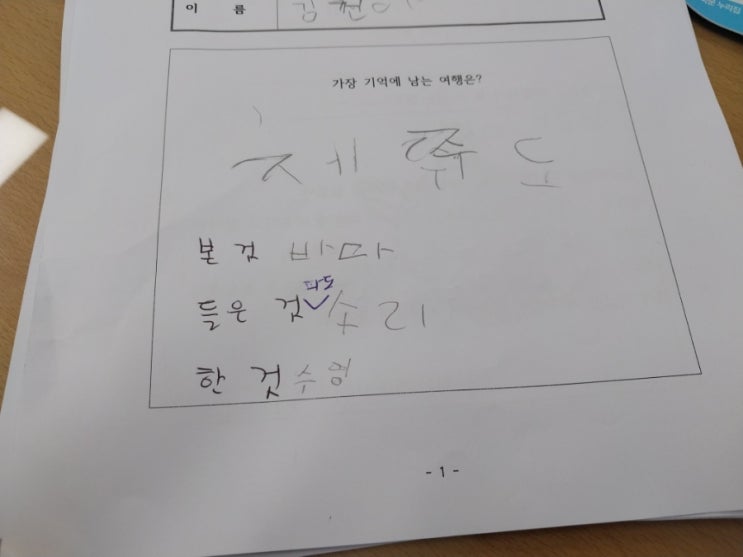 이 름 김
가장 기억에 남는 여행은?
제 쭈 도
본 것
들은 것 파도 소리
한 것 수영
- 1 -